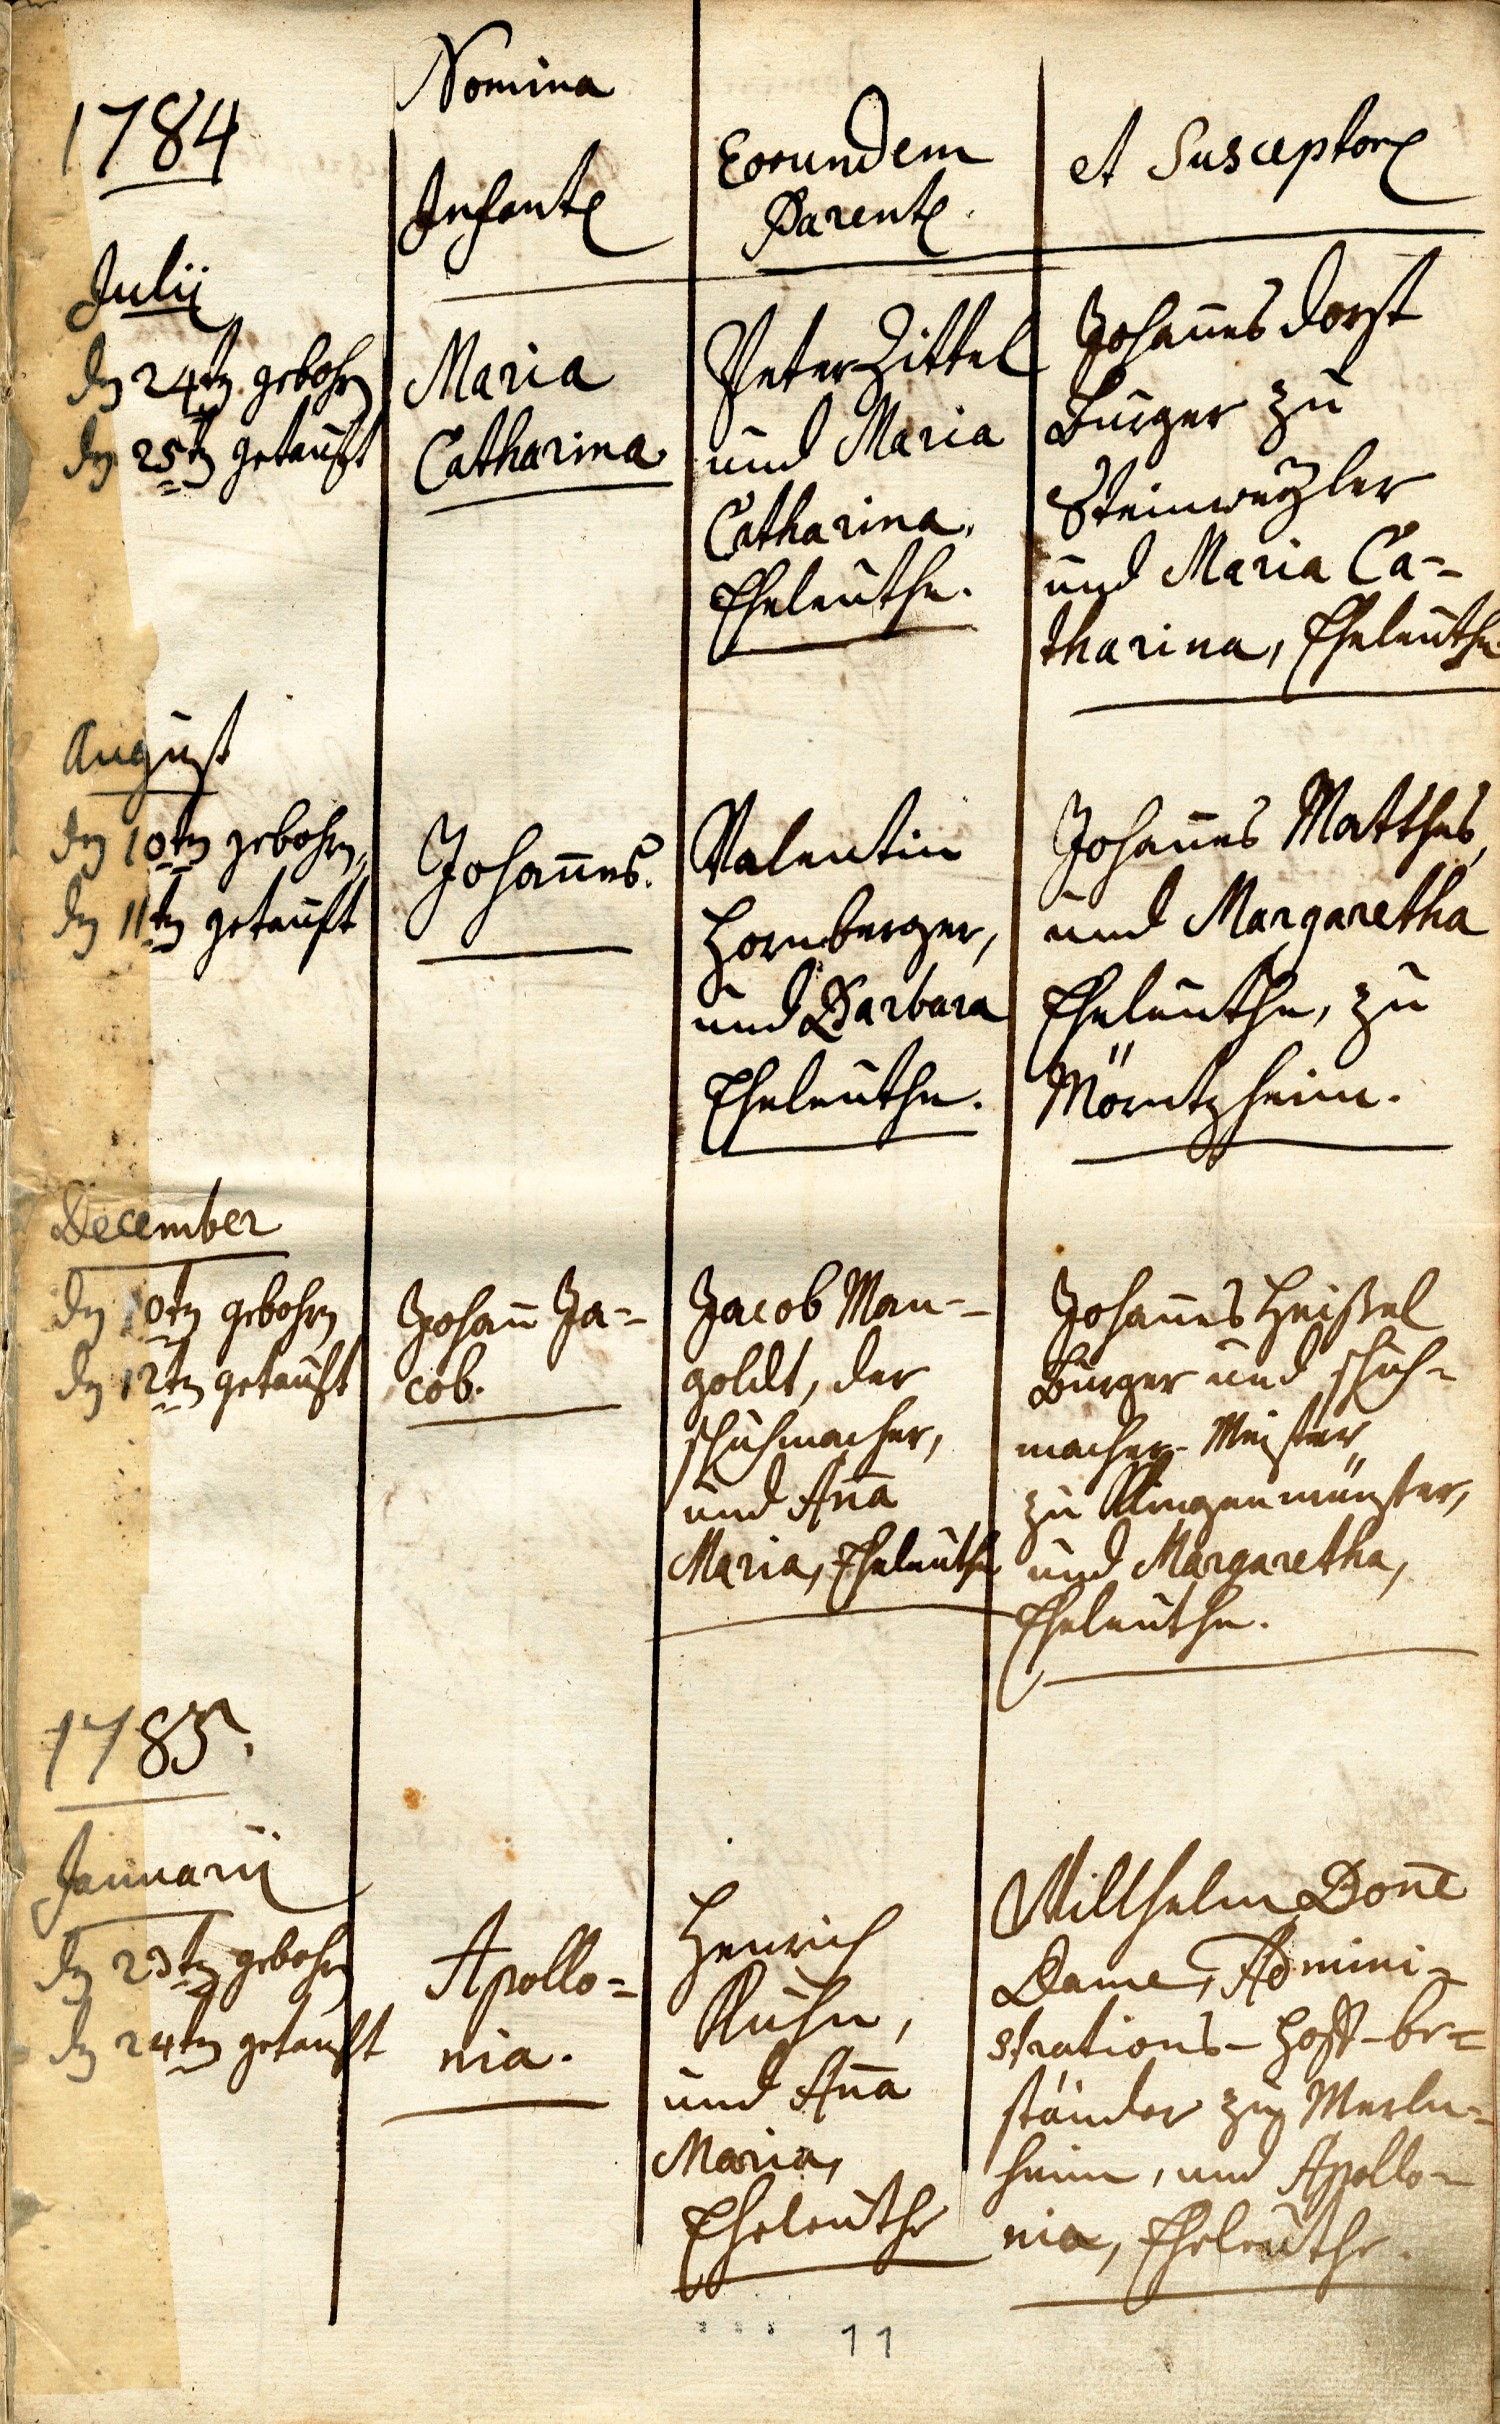 1784
Nomina
Infant.
Eorundem
Parent.
et Susceptor.
Julij
den 24ten gebohren
den 25ten getauft
Maria
Catharina
Peter Zittel
und Maria
Catharina,
Eheleuthe.
Johannes Dorst
Burger zu
Steinweyler
und Maria Ca=
tharina, Eheleuthe
August
den 10ten gebohren,
den 11ten getauft
Johannes.
Valentin
Hornberger,
und Barbara
Eheleuthe.
Johannes Matthes,
und Margaretha
Eheleuthe, zu
Möritzheim.
December
den 10ten gebohren
den 12ten getauft
Johann Ja=
cob.
Jacob Man=
goldt, der
schuhmacher,
und Anna
Maria, Eheleuthe
Johannes Heißel
Burger und schuh=
macher-Meister
zu Klingenmünster,
und Margaretha,
Eheleuthe.
1785.
Januarij
den 23ten gebohren
den 24ten getauft
Apollo=
nia.
Henrich
Kuhn,
und Anna
Maria,
Eheleuthe
Willhelm Donne
Dame, Admini=
strations-Hoff-be=
ständer zu Merln=
heim, und Apollo=
nia, Eheleuthe.
11